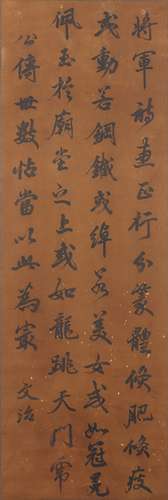 將軍詩畫正行分篆體倏肥倏瘦
或動若鋼鐵或綽若美女或如冠冕
佩玉於廟堂之上或如龍跳天門
公傳世數帖當以此為最
文治